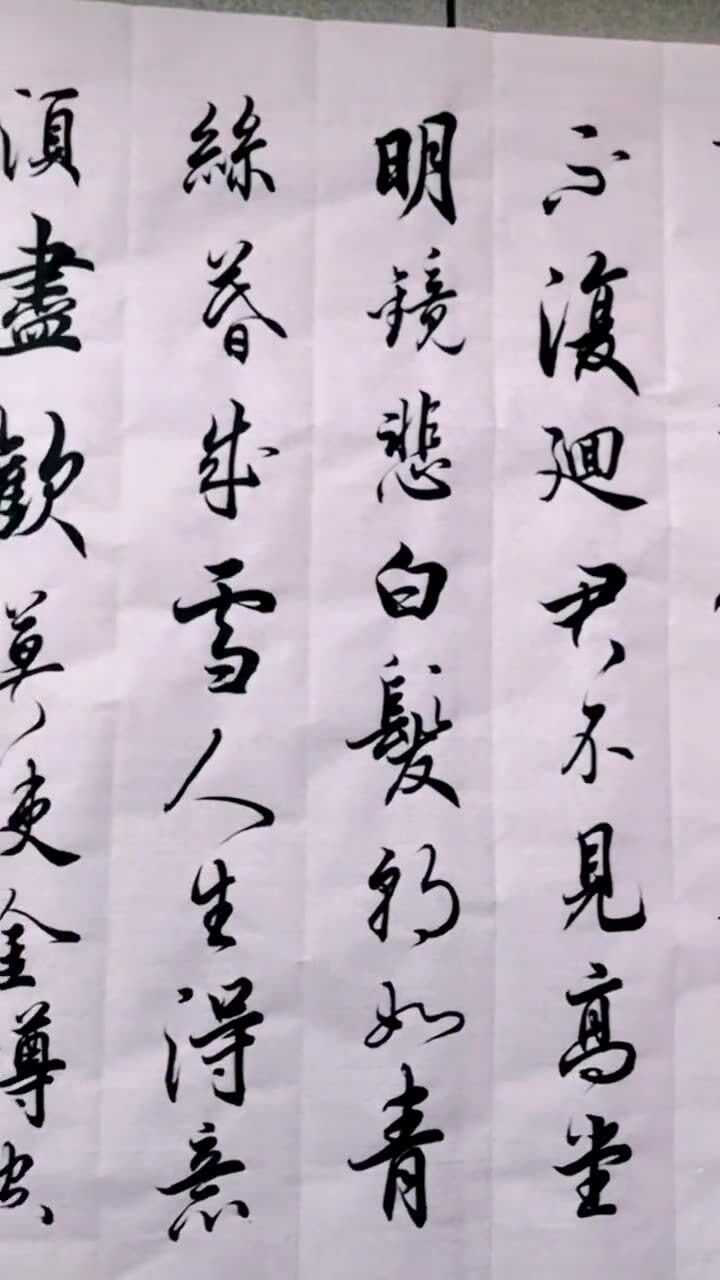 不復迴君不見高堂
明鏡悲白髮朝如青
絲暮成雪人生得意
須盡歡莫使金尊空